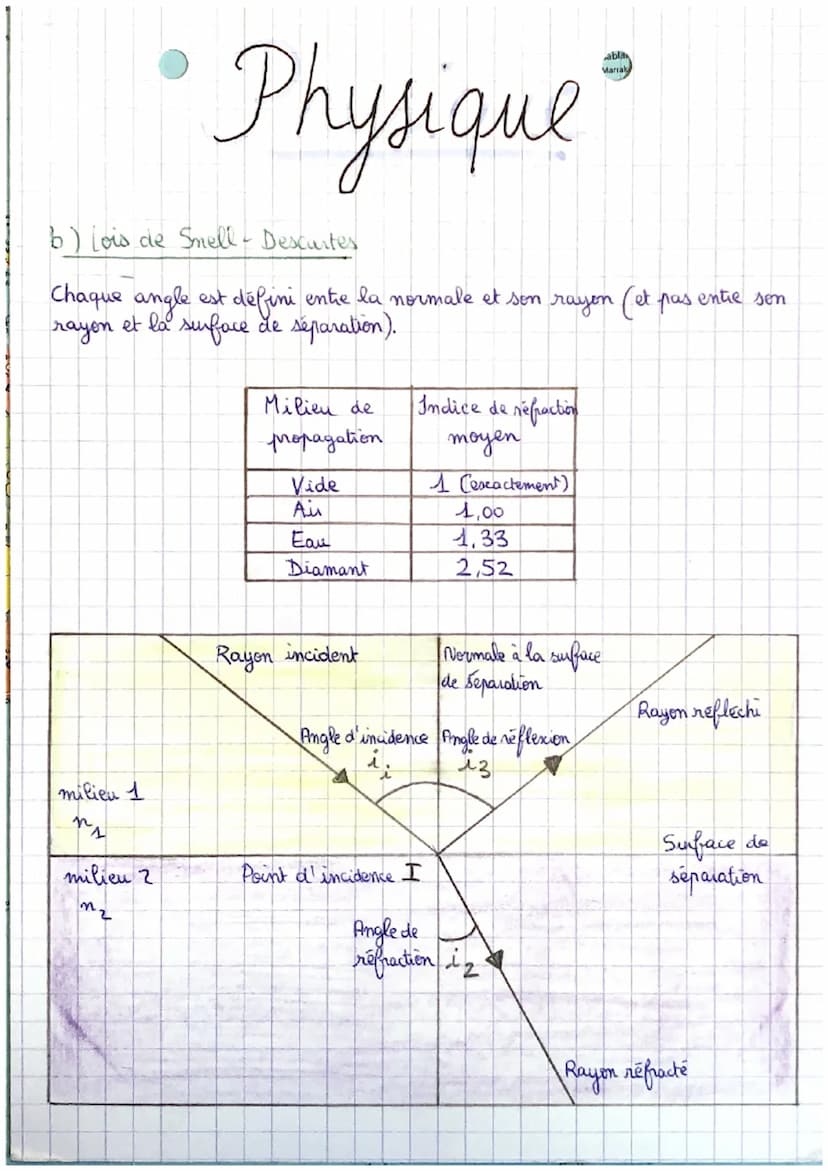 Physique
b) Lois de Snell-Descartes
Chaque angle est défini entre la normale et son rayon (et pas entre son
rayon et la surface de séparation).
Milieu de propagation | Indice de réfraction moyen
Vide | 1 (exactement)
Air | 1,00
Eau | 1,33
Diamant | 2,52
Rayon incident
Normale à la surface
de séparation
Rayon réfléchi
Angle d'incidence
i i
Angle de réflexion
i3
milieu 1
n1
Surface de
séparation
milieu 2
n2
Point d'incidence I
Angle de
réfraction i2
Rayon réfracté